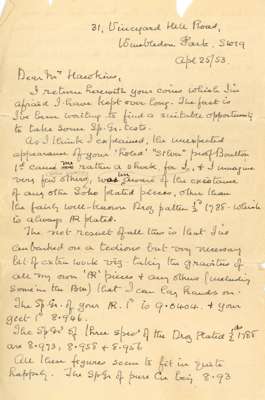 31, Vineyard Hill Road,
Wimbledon Park. SW19
Apl 25/53.
Dear Mr Hawkins,
I return herewith your coins which I'm
afraid I have kept over long. The fact is
I've been waiting to find a suitable opportunity
to take some Sp. Gr. tests.
As I think I explained, the unexpected
appearance of your "holed" "Silver" proof Boulton
1d came as rather a shock for I, & I imagine
very few others, was aware of the existence
of any other Soho plated pieces, other than
the fairly well-known Droz pattern ½d 1788 which
is always R plated.
The net result of all this is that I've
embarked on a tedious but very necessary
bit of extra work viz. taking the gravities of
all my own 'R' pieces & any others (including
some in the BM) that I can lay hands on.
The Sp. Gr. of your R. 1d is 9.0404. & your
gilt 1d 8.946.
The Sp Grs of three specs of the Droz Plated ½ds 1788
are 8.973, 8.958 & 8.956
All these figures seem to fit in quite
happily. The Sp Gr of pure Cu being 8.93